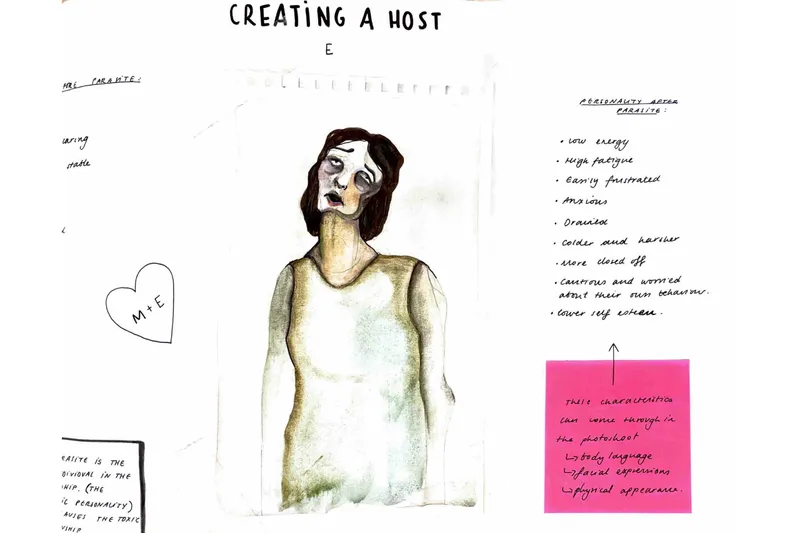 CREATING A HOST
E
PARASITE:
caring
stable
M + E
PARASITE IS THE
INDIVIDUAL IN THE
SHIP. (THE
IC PERSONALITY)
AUSES THE TOXIC
NSHIP
PERSONALITY AFTER
PARASITE:
• Low energy
• High fatigue
• Easily frustrated
• Anxious
• Drained
• Colder and harsher
• More closed off
• Cautious and worried
about their own behaviour.
• Lower self esteem.
These characteristics
can come through in
the photoshoot
↳ body language
↳ facial expressions
↳ physical appearance.